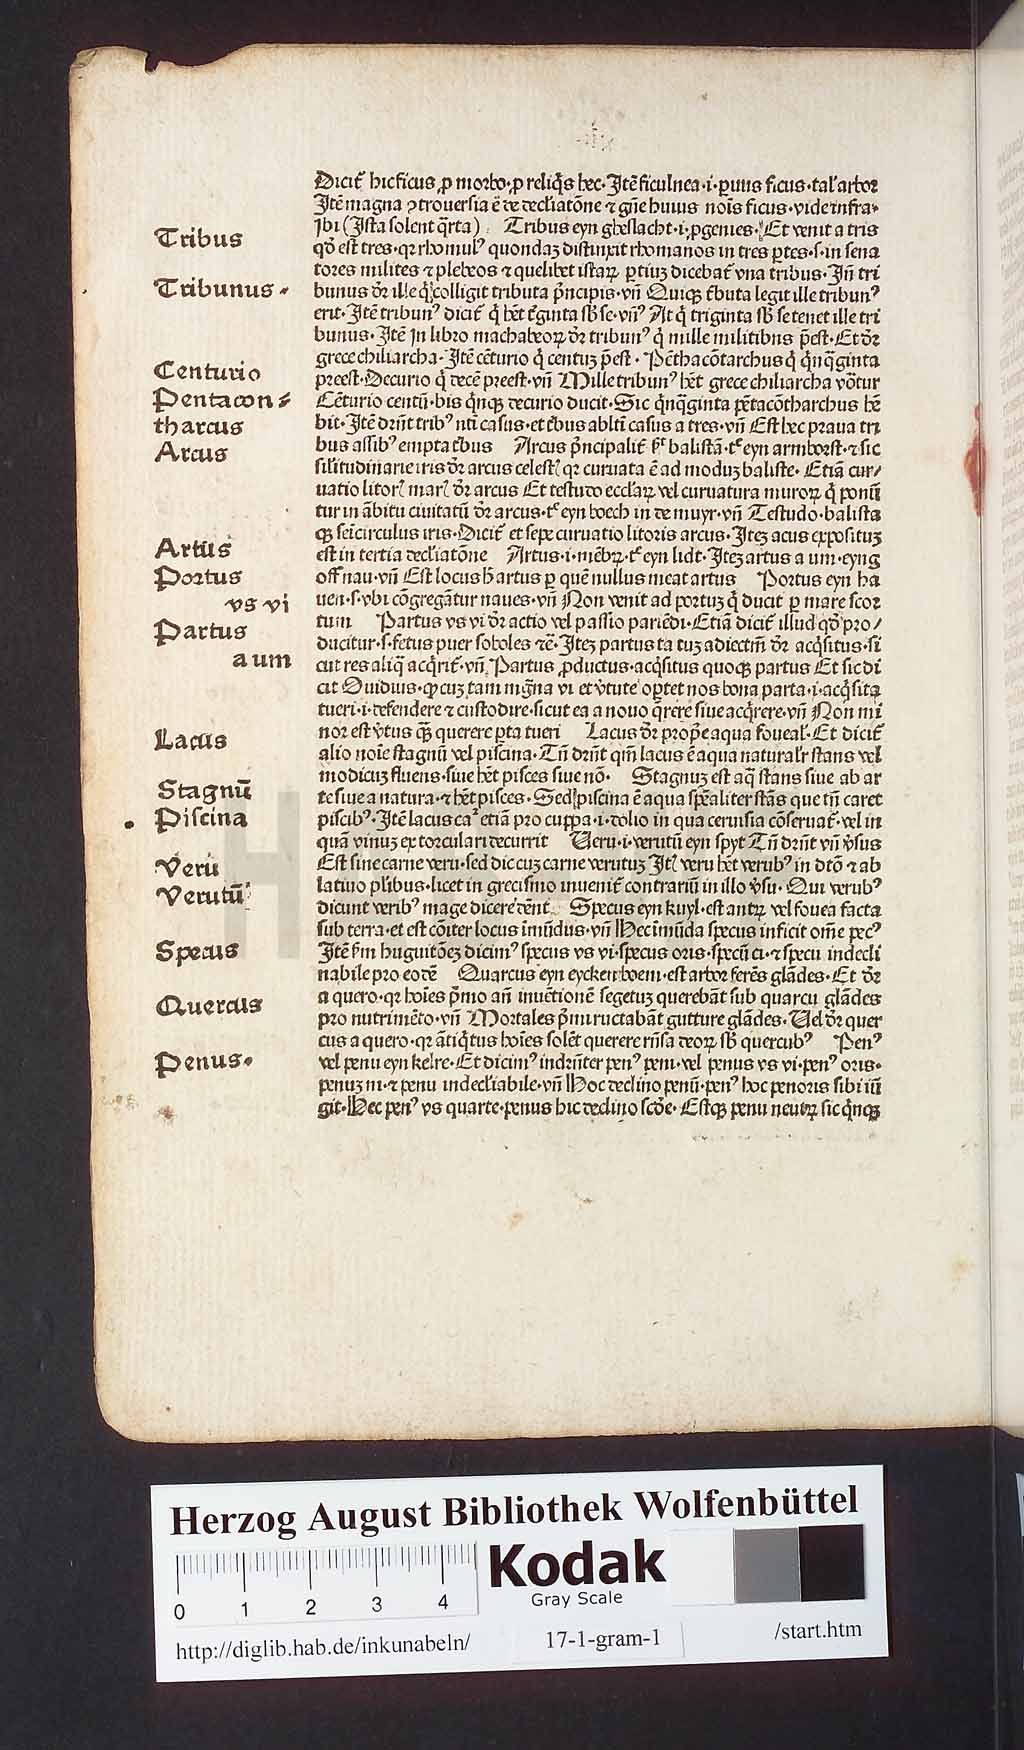 Dicit᷑ hic ficus ꝓ morbo·ꝓ reliq̄s hec·Itē ficulnea·i·ꝑuus ficus·tal' arbor
Itē magna ꝯtrouersia ē de decliatōne ⁊ gn̄e huius noīs ficus·vide infra·
Ibi (Ista solent q̄rta) Tribus eyn gheslacht·i·ꝓgenies·Et venit a tris
Tribus
qd̄ est tres·qꝛ rhomulꝰ quondaꝫ distinxit rhomanos in tres ꝑtes·s·in sena
tores milites ⁊ plebeos ⁊ quelibet istaꝝ ꝑtiuꝫ dicebat᷑ vna tribus·Jn̄ tri
Tribunus·
bunus dr̄ ille q̄ colligit tributa p̄ncipis·vn̄ Quiqꝫ t̄buta legit ille tribunꝰ
erit·Itē tribunꝰ dicit᷑ q̄ hēt t̄ginta sb̄ se·vn̄ꝰ At q̄ triginta sb̄ se tenet ille tri
bunus·Itē In libro machabeoꝝ dr̄ tribunꝰ q̄ mille militibns p̄est·Et dr̄
grece chiliarcha·Itē cēturio q̄ centuꝫ p̄est·Pēthacōtarchus q̄ q̄nq̄ginta
Centurio
preest·Decurio q̄ decē preest·vn̄ Mille tribunꝰ hēt grece chiliarcha vōtur
Pentacon⸗
Cēturio centū·bis q̄nqꝫ decurio ducit·Sic q̄nq̄ginta pētacōtharchus hē
tharcus
bit·Itē drn̄t tribꝰ nti casus·et t̄bus ablti casus a tres·vn̄ Est hec praua tri
Arcus
bus assibꝰ empta t̄bus Arcus p̄ncipalit᷑ balistā·t᷑ eyn armborst·⁊ sic
silitudinarie iris dr̄ arcus celest᷑ qꝛ curuata ē ad moduꝫ baliste·Etiā cur/
uatio litorꝭ marꝭ dr̄ arcus Et testudo eccl'aꝝ vel curuatura muroꝝ q̄ ponū
tur in ābitu ciuitatū dr̄ arcus·t᷑ eyn boech in de muyr·vn̄ Testudo·balista
qꝫ sēicirculus iris·Dicit᷑ et sepe curuatio litoris arcus·Iteꝫ acus expositꝫ
Artus
est in tertia decliatōne Artus·i·mēbꝝ·t᷑ eyn lidt·Iteꝫ artus a um·eyng
Portus
off nau·vn̄ Est locus h̄ artus ꝑ quē nullus meat artus Portus eyn ha
vs vi
uen·s·vbi cōgregātur naues·vn̄ Non venit ad portuꝫ q̄ ducit ꝑ mare scor
Partus
tum Partus vs vi dr̄ actio vel passio pariēdi·Etiā dicit᷑ illud qd̄ pro/
ducitur·s·fetus puer soboles ⁊c̄·Iteꝫ partus ta tuꝫ adiectiū dr̄ acq̄situs·si
a um
cut res aliq̄ acq̄rit᷑·vn̄ Partus ꝓductus·acq̄situs quoqꝫ partus Et sic di
cit Ouidius·qꝫ cuꝫ tam mgna vi et v̄tute oꝑtet nos bona parta·i·acq̄sita
tueri·i·defendere ⁊ custodire·sicut ea a nouo q̄rere siue acq̄rere·vn̄ Non mi
Lacus
nor est v̄tus q̄ꝫ querere ꝑta tueri Lacus dr̄ prop̄e aqua foueal'·Et dicit᷑
alio noīe stagnū vel piscina·Tn̄ drn̄t qm̄ lacus ē aqua natural'r stans vel
modicuꝫ fluens·siue hēt pisces siue nō· Stagnuꝫ est aq̄ stans siue ab ar
Stagnū
te siue a natura·⁊ hēt pisces·Sed piscina ē aqua spēaliter stās que tn̄ caret
Piscina
piscibꝰ·Itē lacus etiā pro cuppa·i·dolio in qua ceruisia cōseruat᷑·vel in
quā vinuꝫ ex torculari decurrit Ueru·i·verutū eyn spyt Tn̄ drn̄t vn̄ v̄sus
Veru
Est sine carne veru·sed dic cuꝫ carne verutuꝫ Itꝭ veru hēt verubꝰ in dtō ⁊ ab
Verutū
latiuo pl'ibus·licet in grecismo inuenit᷑ contrariū in illo v̄su·Qui verubꝰ
dicunt veribꝰ mage dicere dēnt Specus eyn kuyl·est antꝝ vel fouea facta
sub terra·et est cōiter locus īmūdus·vn̄ Hec īmūda specus inficit om̄e pecꝰ
Specus
Itē hm̄ huguitōeꝫ dicimꝰ specus vs vi·specus oris·specū ci·⁊ specu indecli
nabile pro eodē Quarcus eyn eycken boem·est arbor ferēs glādes·Et dr̄
Quercus
a quero·qꝛ hoīes p̄mo an̄ inuētionē segetuꝫ querebāt sub quarcu glādes
pro nutrimēto·vn̄ Mortales p̄mi ructabāt gutture glādes·Uel dr̄ quer
cus a quero·qꝛ ātiq̄tus hoīes solēt querere rn̄sa deoꝝ sb̄ quercubꝰ Penꝰ
Penus·
vel penu eyn kelre·Et dicimꝰ indrn̄ter penꝰ peni·vel penus vs vi·penꝰ oris·
penuꝫ ni·⁊ penu indecliabile·vn̄ Hoc declino penū·penꝰ hoc penoris sibi iū
git·Hec penꝰ vs quarte·penus hic declino scd̄e·Estqꝫ penu neutꝝ sic q̄nqꝫ
Herzog August Bibliothek Wolfenbüttel
0 1 2 3 4
Kodak
Gray Scale
http://diglib.hab.de/inkunabeln/ 17-1-gram-1 /start.htm
HAB